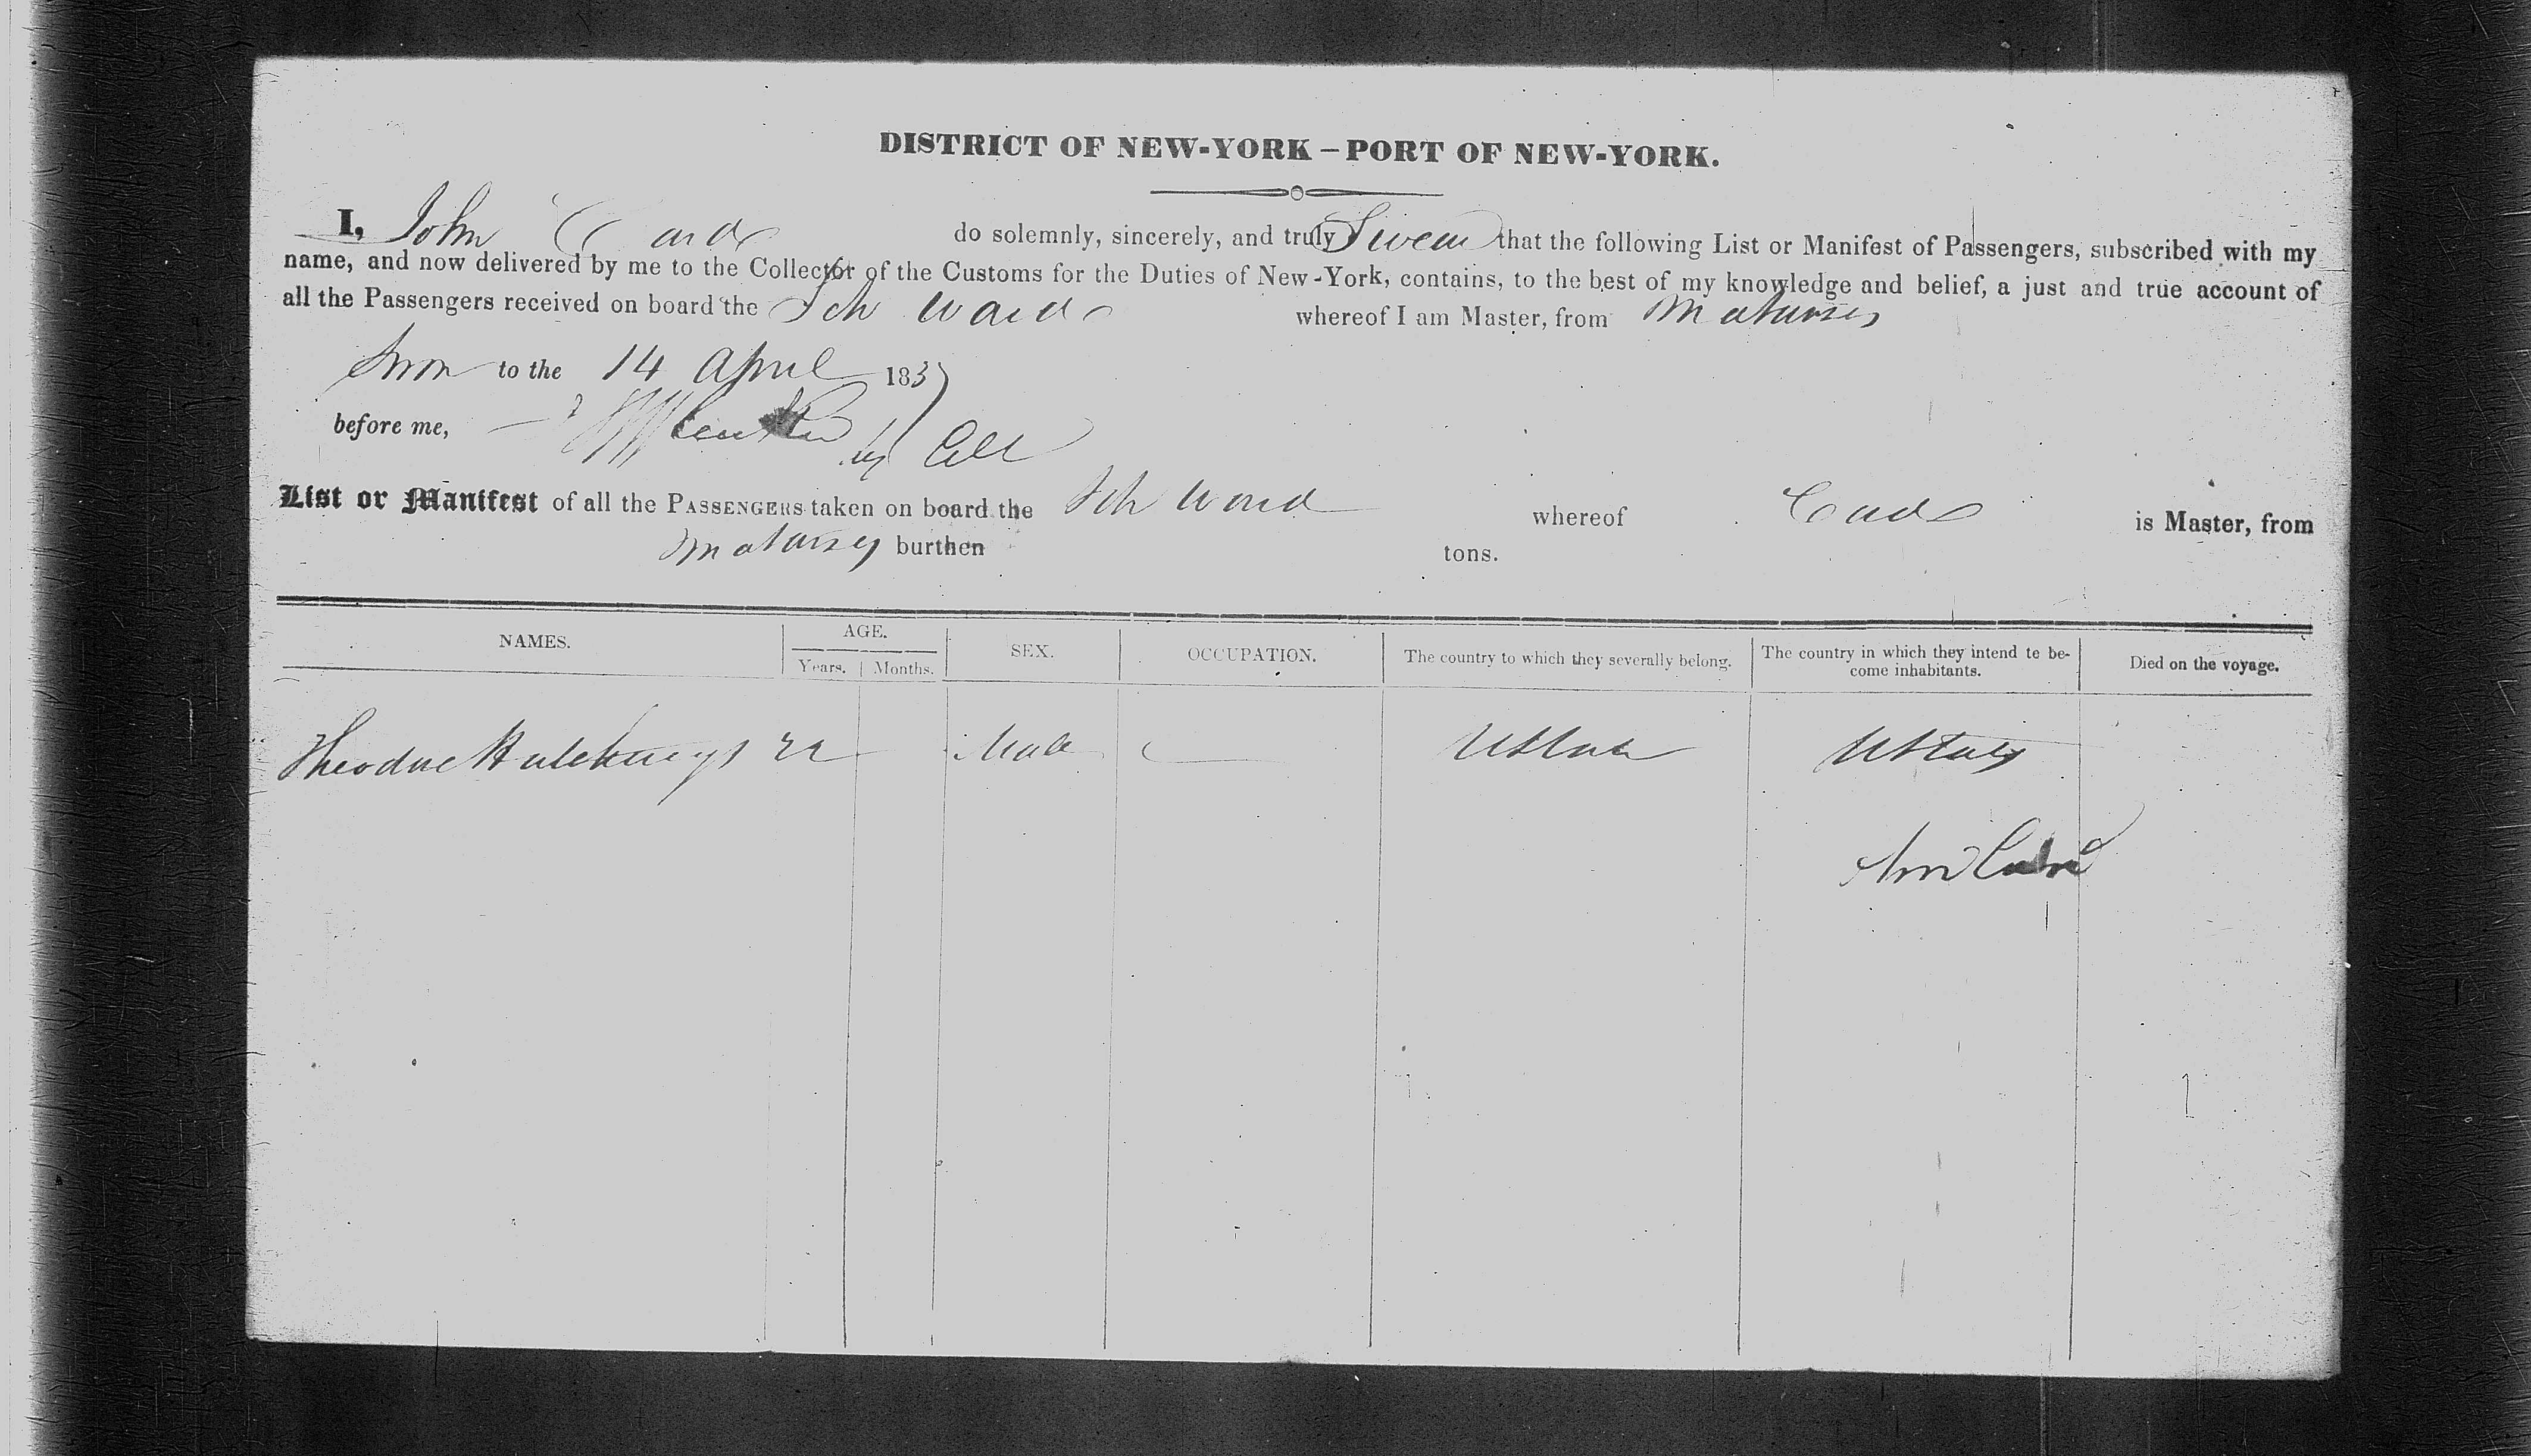 DISTRICT OF NEW-YORK – PORT OF NEW-YORK.
I, John Card do solemnly, sincerely, and truly Swear that the following List or Manifest of Passengers, subscribed with my
name, and now delivered by me to the Collector of the Customs for the Duties of New-York, contains, to the best of my knowledge and belief, a just and true account of
all the Passengers received on board the Sch Ward whereof I am Master, from
to the 14 April 1837
before me,
List or Manifest of all the PASSENGERS taken on board the Sch Ward whereof Card is Master, from
burthen tons.
NAMES. AGE. SEX. OCCUPATION. The country to which they severally belong. The country in which they intend te be-
come inhabitants. Died on the voyage.
Years. Months.
Theodore 22 Male U States U States